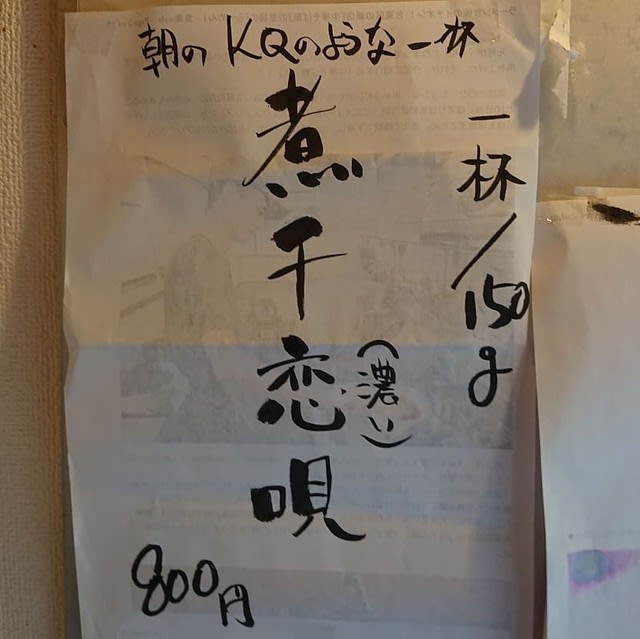 朝のKQのような一杯
一杯/150g
煮干恋唄
(濃い)
800円